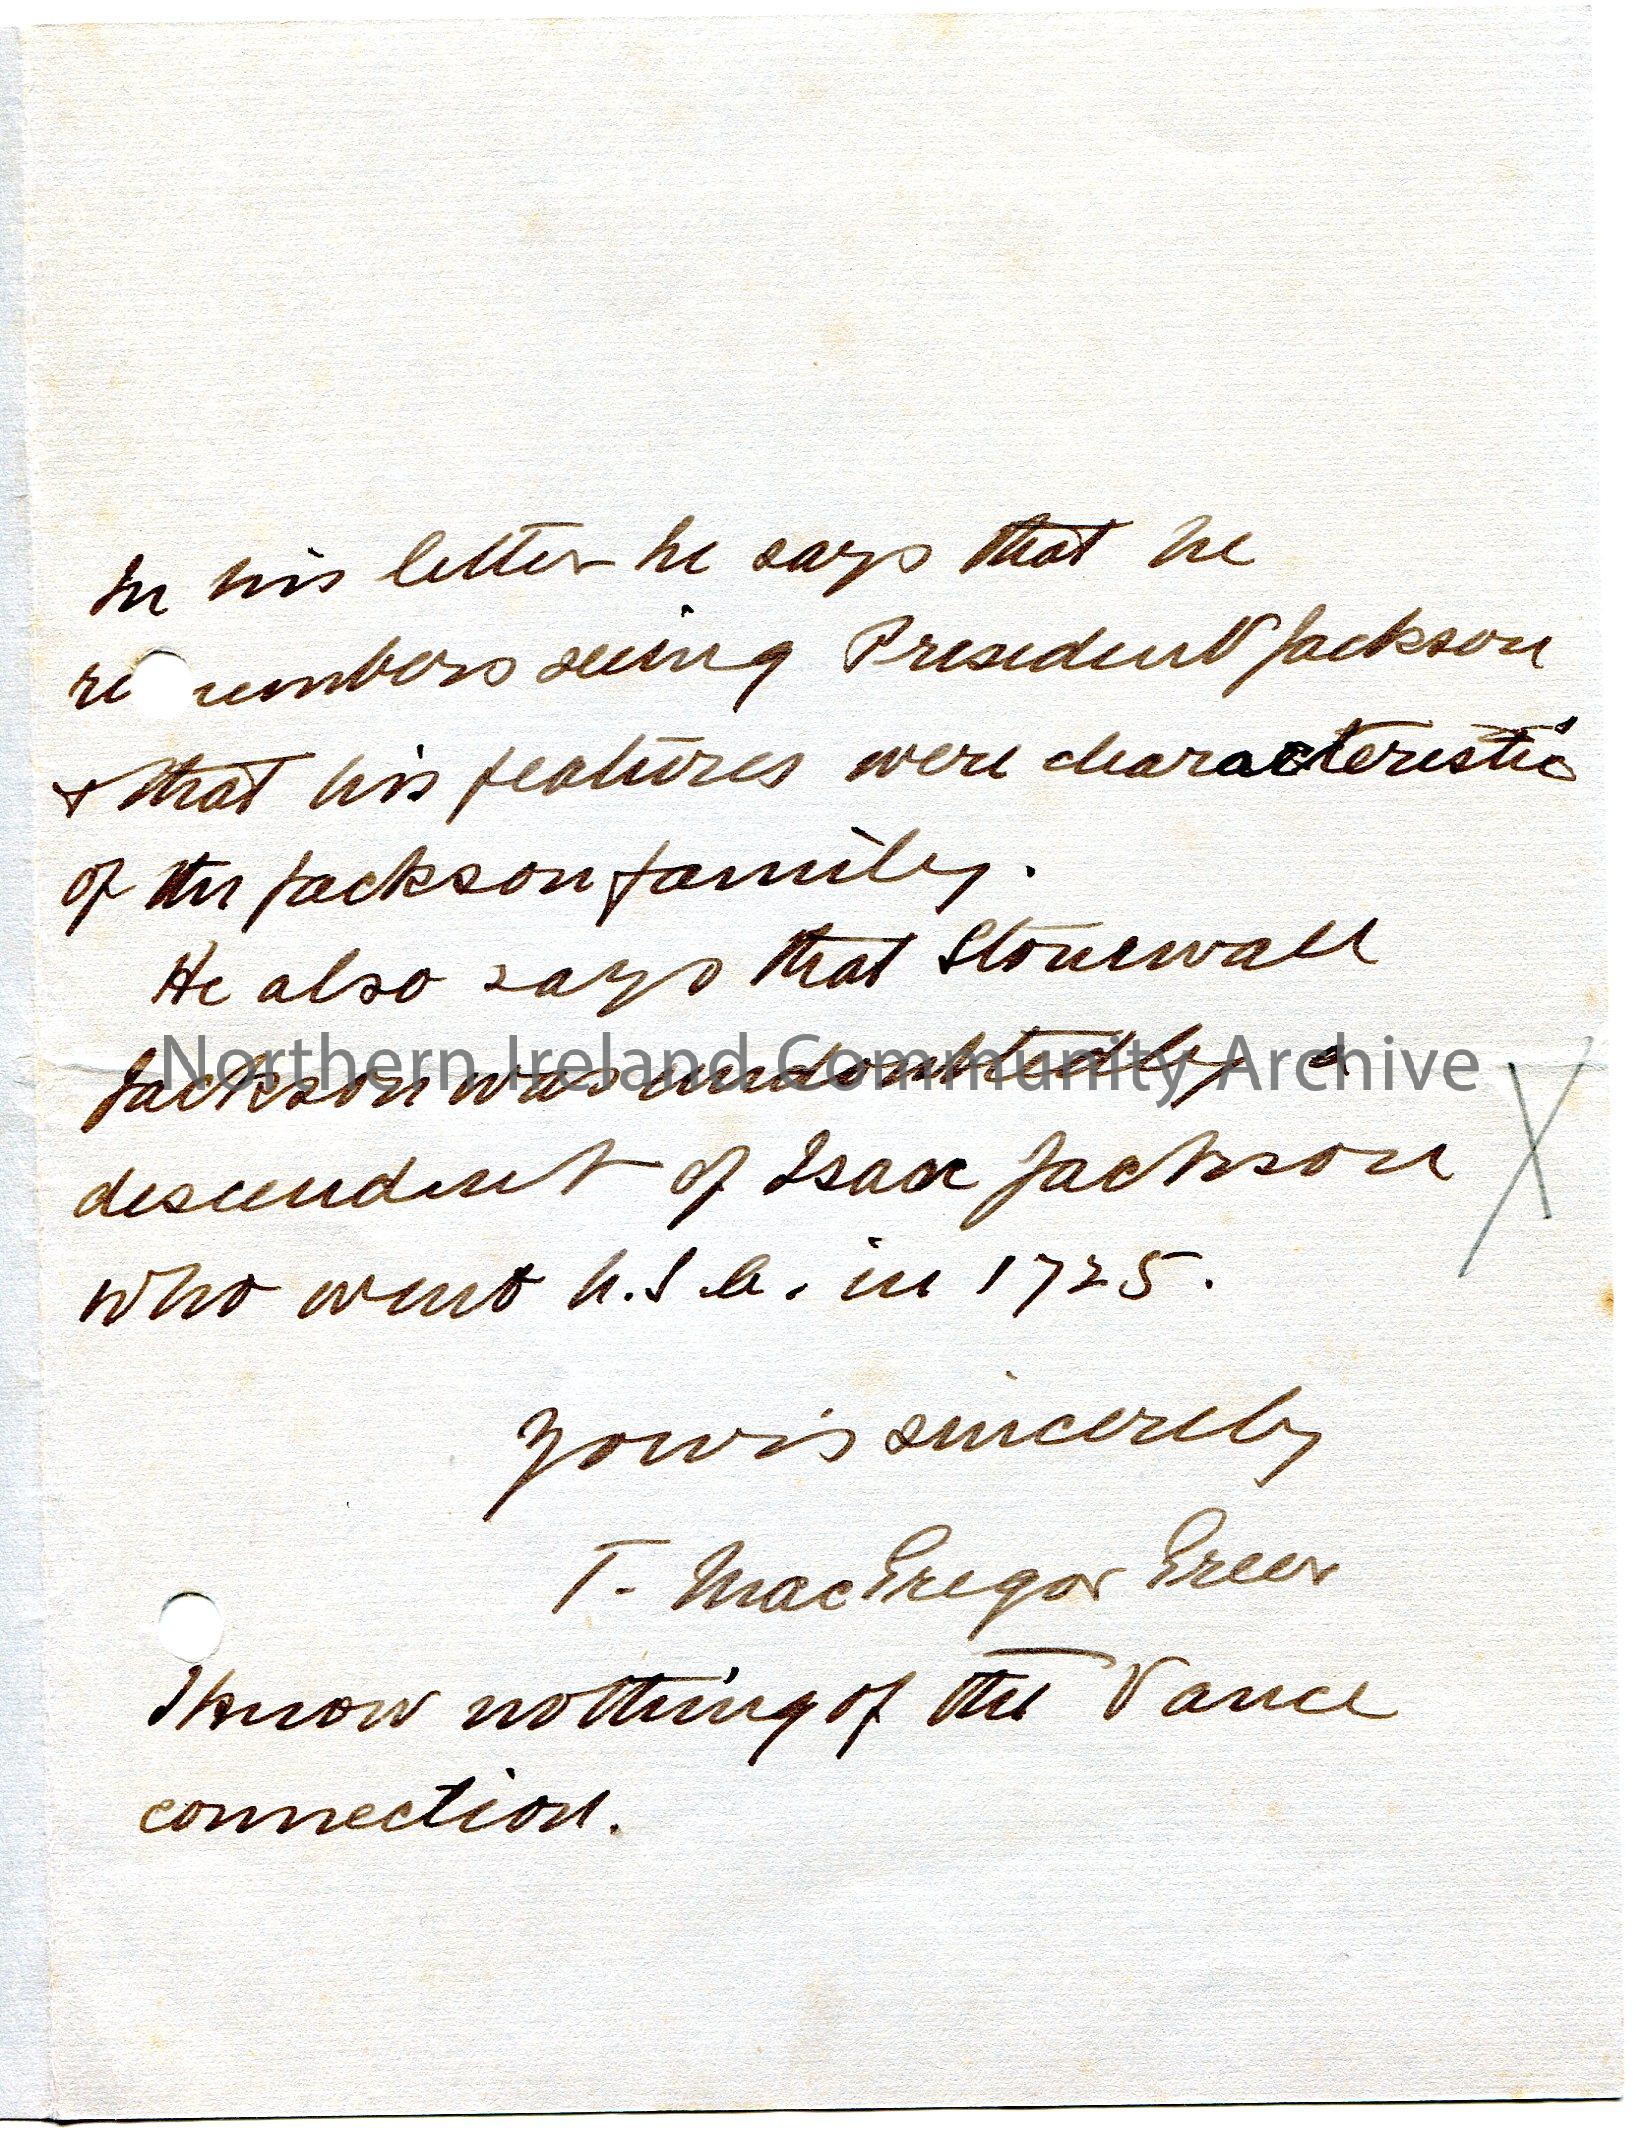 In his letter he says that he
remembers seeing President Jackson
& that his features were characteristic
of the Jackson family.
He also says that Stonewall
Jackson was undoubtedly a
Northern Ireland Community Archive
descendent of Isaac Jackson
who went U.S.A. in 1725.
Yours sincerely
T. MacGregor Greer
I know nothing of the Vance
connection.